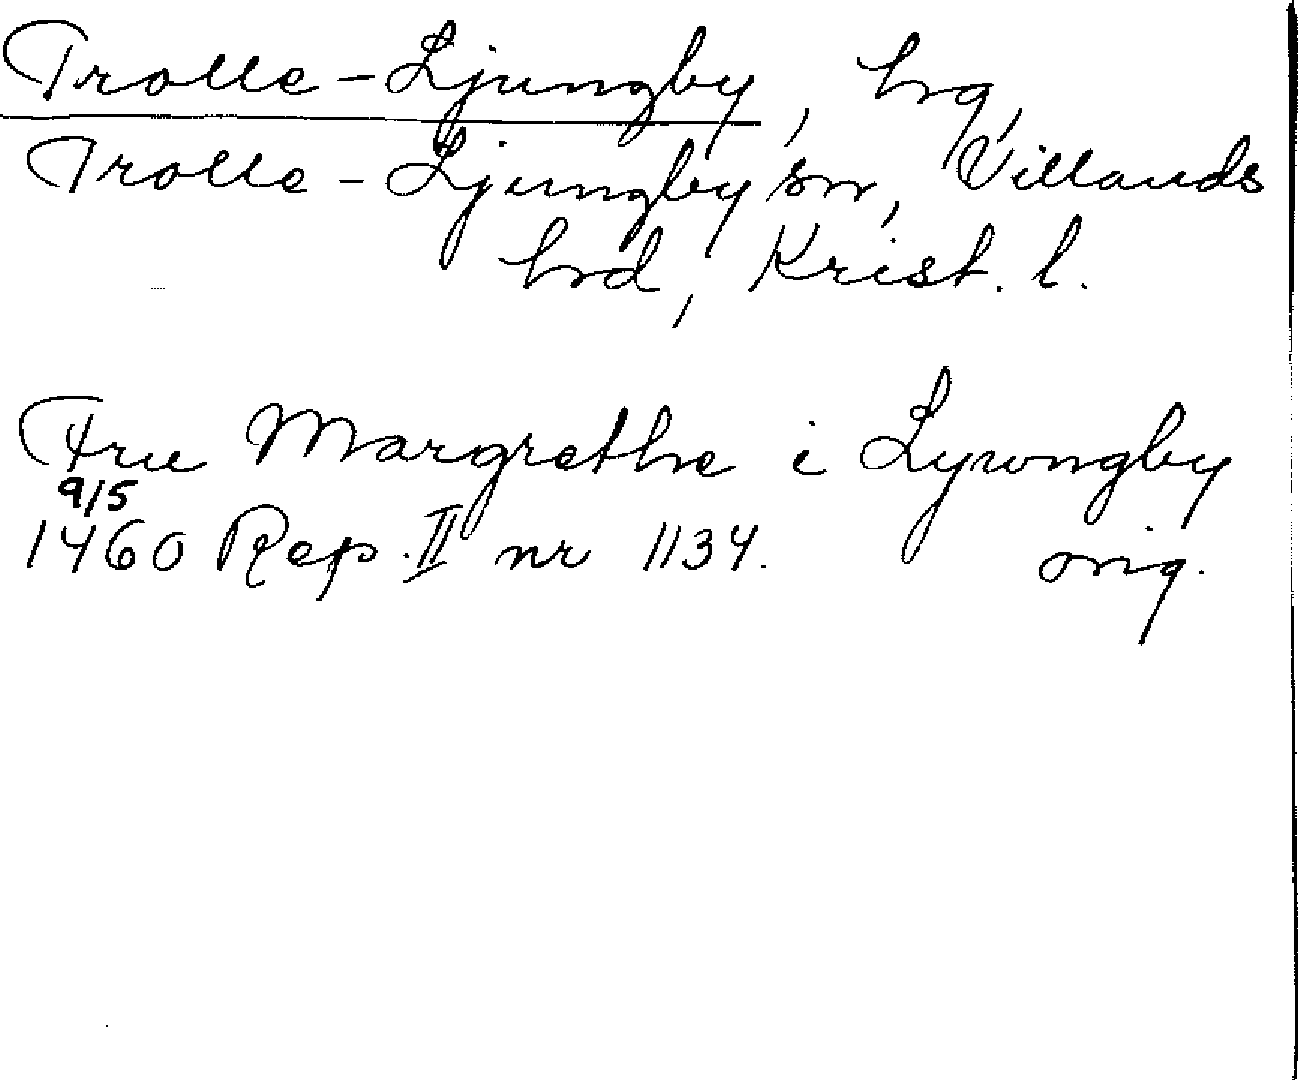 Trolle-Ljungby, hg,
Trolle-Ljungby sn, Villands
hrd, Krist. l.
Fru Margrethe i Lywngby
9/5
1460 Rep. II nr 1134. orig.